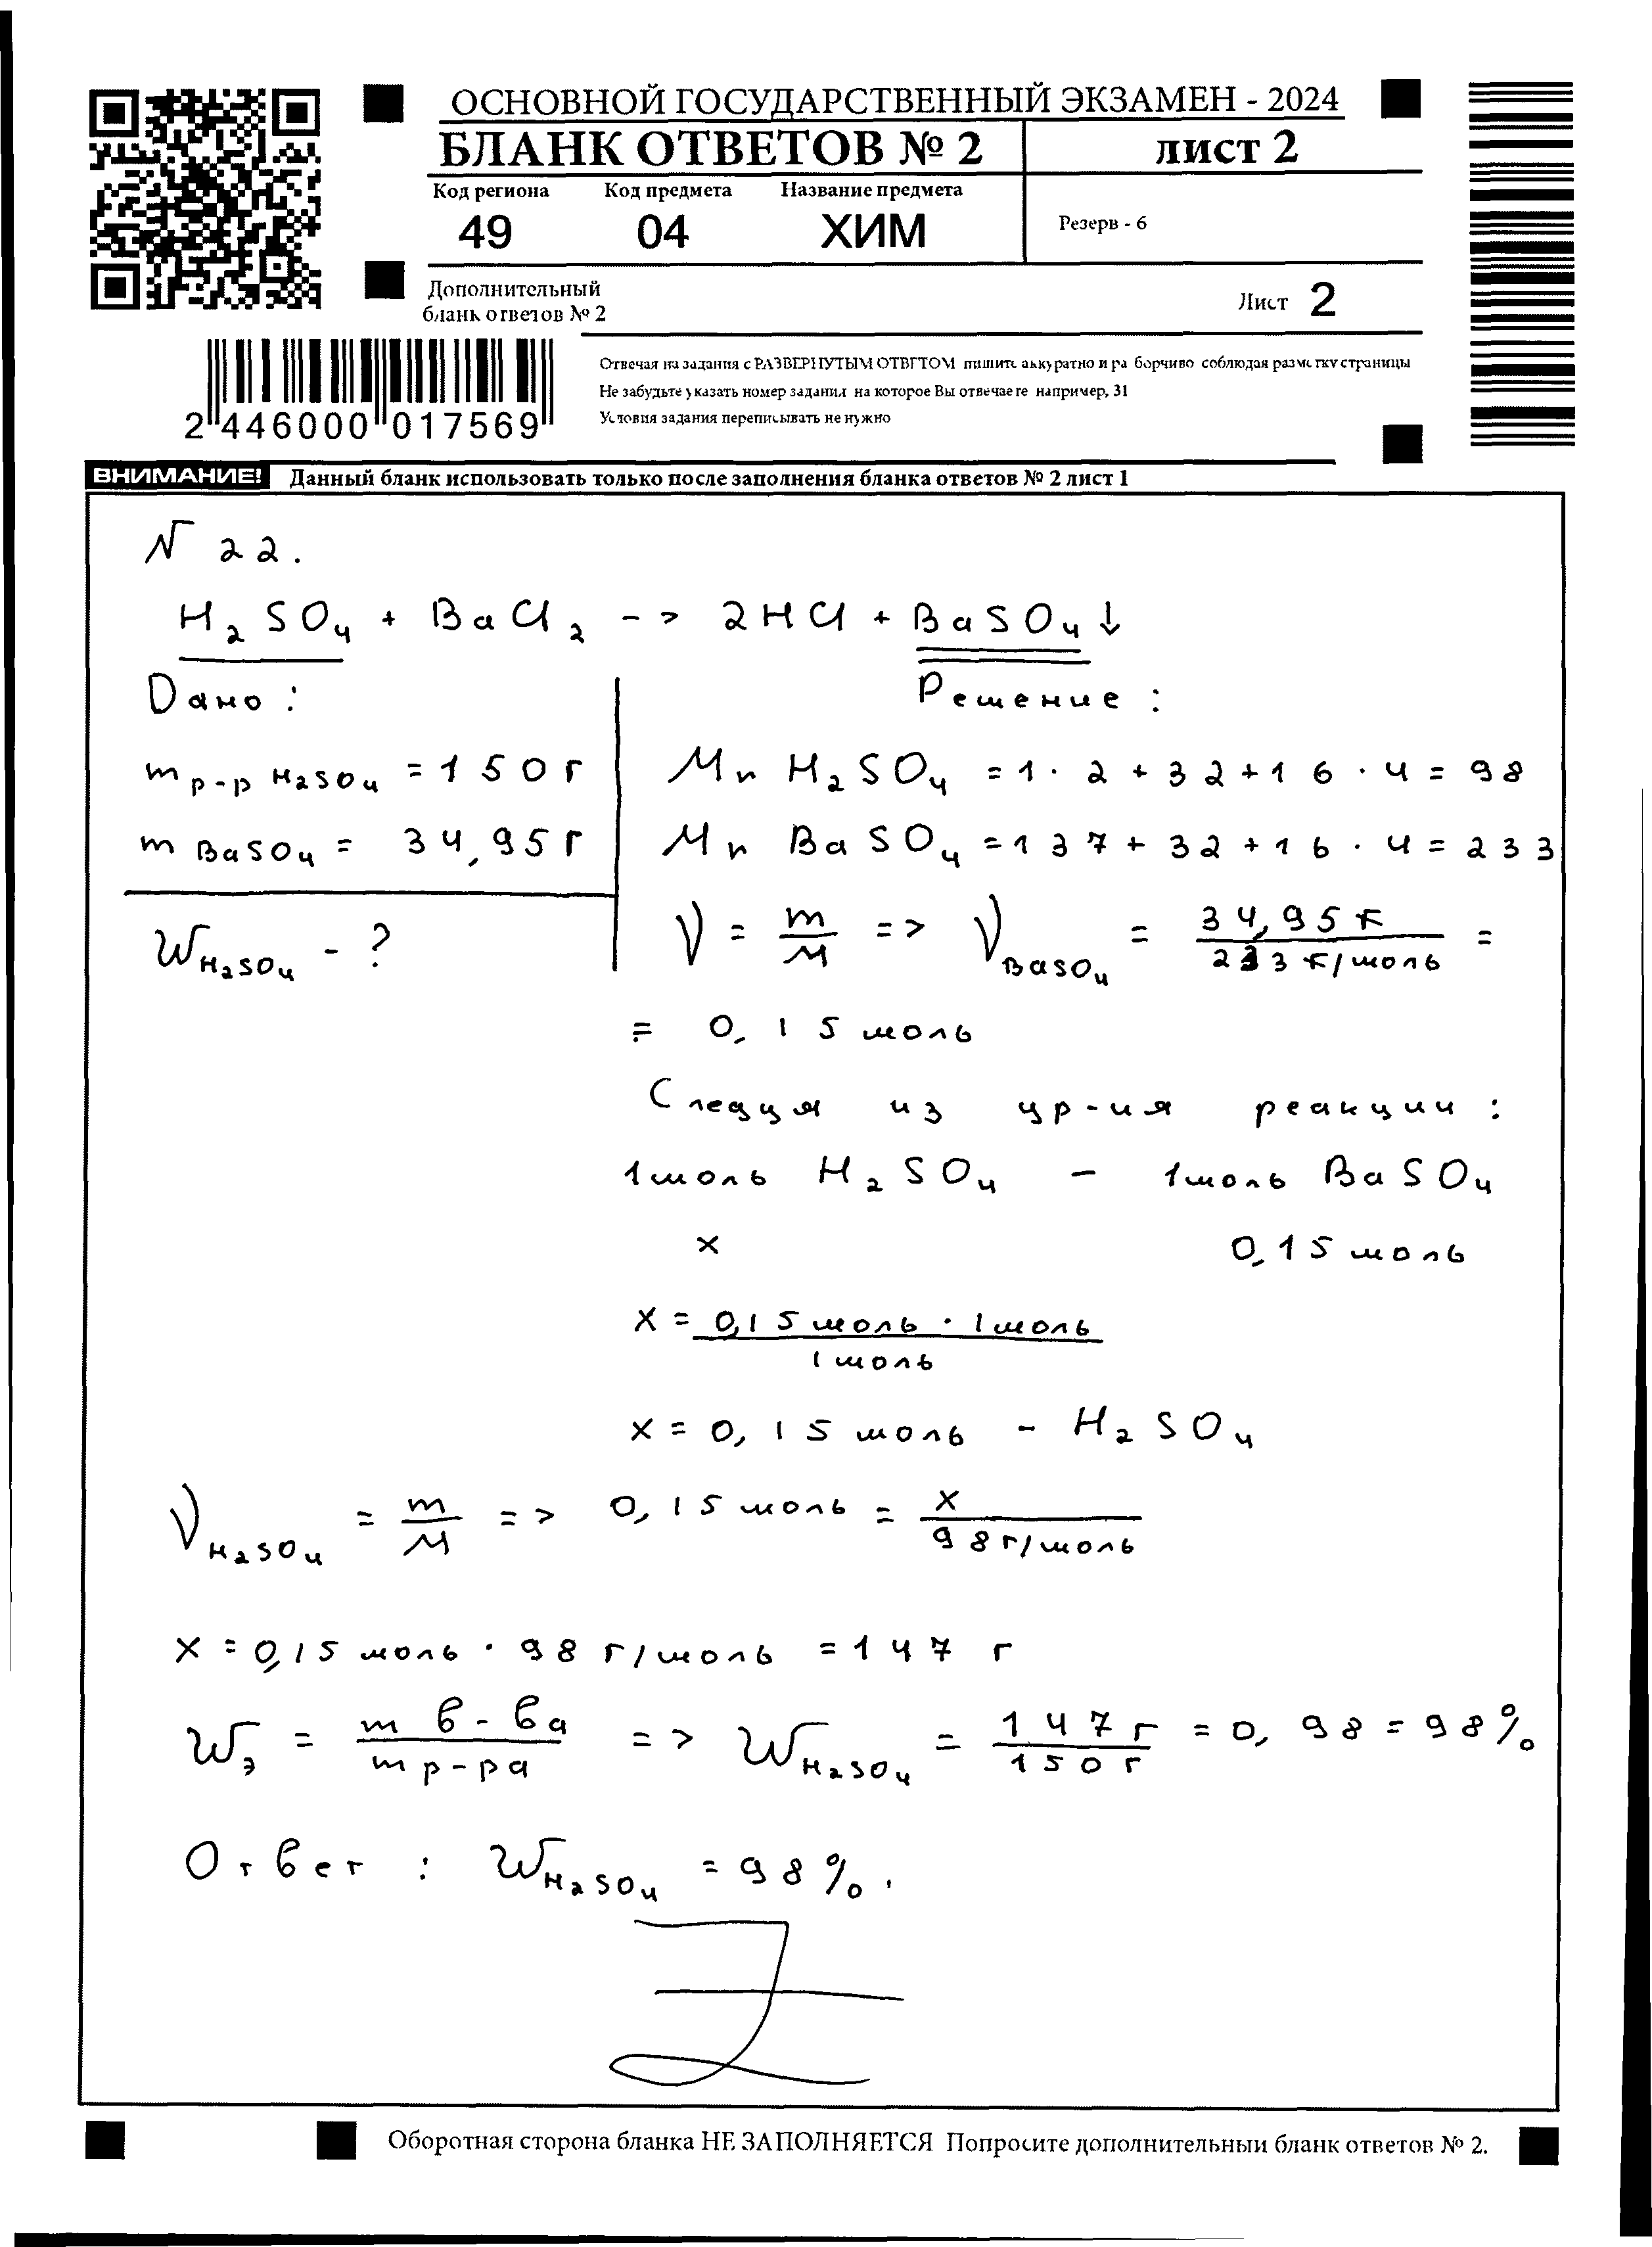 ОСНОВНОЙ ГОСУДАРСТВЕННЫЙ ЭКЗАМЕН - 2024
БЛАНК ОТВЕТОВ № 2 лист 2
Код региона Код предмета Название предмета
49 04 ХИМ
Резерв - 6
Дополнительный
бланк ответов № 2
Лист 2
2 446000 017569
Отвечая на задания с РАЗВЕРНУТЫМ ОТВЕТОМ пишите аккуратно и разборчиво соблюдая разметку страницы
Не забудьте указать номер задания на которое Вы отвечаете например, 31
Условия задания переписывать не нужно
ВНИМАНИЕ! Данный бланк использовать только после заполнения бланка ответов № 2 лист 1
N 22.
H₂SO₄ + BaCl₂ -> 2HCl + BaSO₄↓
Дано:
m р-р H₂SO₄ = 150 г
m BaSO₄ = 34,95 г
W H₂SO₄ - ?
Решение:
Mr H₂SO₄ = 1 · 2 + 32 + 16 · 4 = 98
Mr BaSO₄ = 137 + 32 + 16 · 4 = 233
ν = m/M => ν BaSO₄ = 34,95 г / 233 г/моль =
= 0,15 моль
Следуя из ур-ия реакции:
1 моль H₂SO₄ - 1 моль BaSO₄
x 0,15 моль
x = 0,15 моль · 1 моль / 1 моль
x = 0,15 моль - H₂SO₄
ν H₂SO₄ = m/M => 0,15 моль = x / 98 г/моль
x = 0,15 моль · 98 г/моль = 147 г
W э = m в-ва / m р-ра => W H₂SO₄ = 147 г / 150 г = 0,98 = 98%
Ответ: W H₂SO₄ = 98%.
Оборотная сторона бланка НЕ ЗАПОЛНЯЕТСЯ Попросите дополнительный бланк ответов № 2.